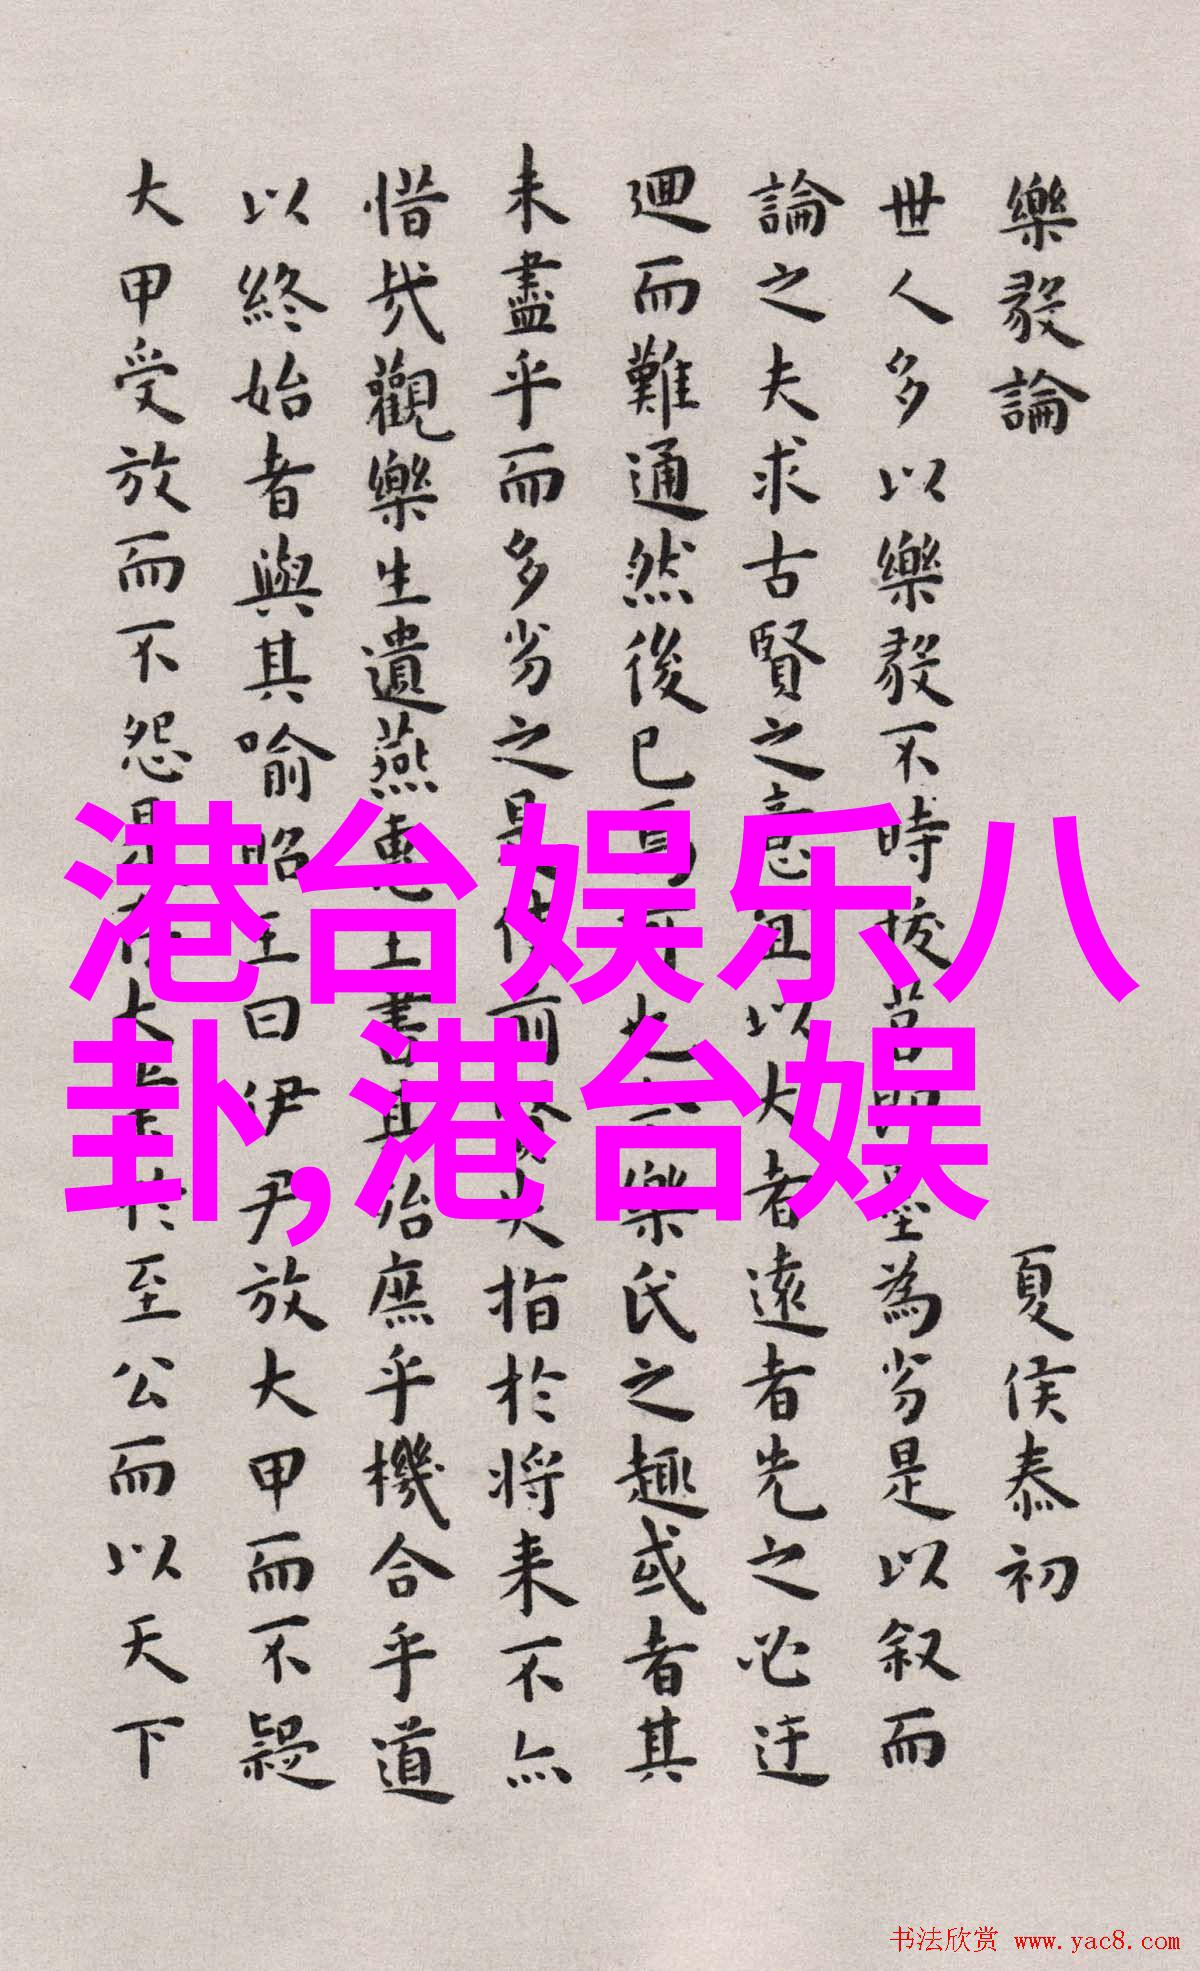 樂毅論 夏侯泰初
世人多以樂毅不時拔莒即墨為劣是以叙而
論之夫求古賢之意宜以大者遠者先之必迂
迴而難通然後已焉可也今樂氏之趣或者其
未盡乎而多劣之是使前賢失指於将来不亦
惜哉觀樂生遺燕惠王書其殆庶乎機合乎道
以終始者與其喻昭王曰伊尹放大甲而不疑
大甲受放而不怨是存大業於至公而以天下
港台娱乐八
卦,港台娱
书法欣赏 www.yac8.com